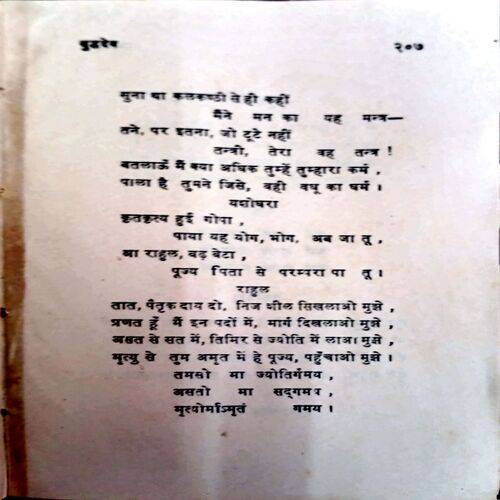 बुद्धदेव २०७
सुना था कलकण्ठी से ही कहीं
मैंने मन का यह मन्त्र—
तने, पर इतना, जो टूटे नहीं
तन्त्री, तेरा वह तन्त्र !
बतलाऊँ मैं क्या अधिक तुम्हें तुम्हारा कर्म ,
पाला है तुमने जिसे, वही वधू का धर्म ।
यशोधरा
कृतकृत्य हुई गोपा ,
पाया यह योग, भोग, अब जा तू ,
आ राहुल, बढ़ बेटा ,
पूज्य पिता से परम्परा पा तू ।
राहुल
तात, पैतृक दाय दो, निज शील सिखलाओ मुझे ,
प्रणत हूँ मैं इन पदों में, मार्ग दिखलाओ मुझे ,
असत से सत में, तिमिर से ज्योति में लाओ मुझे ,
मृत्यु से तुम अमृत में हे पूज्य, पहुँचाओ मुझे ।
तमसो मा ज्योतिर्गमय ,
असतो मा सद्गमय ,
मृत्योर्माऽमृतं गमय ।